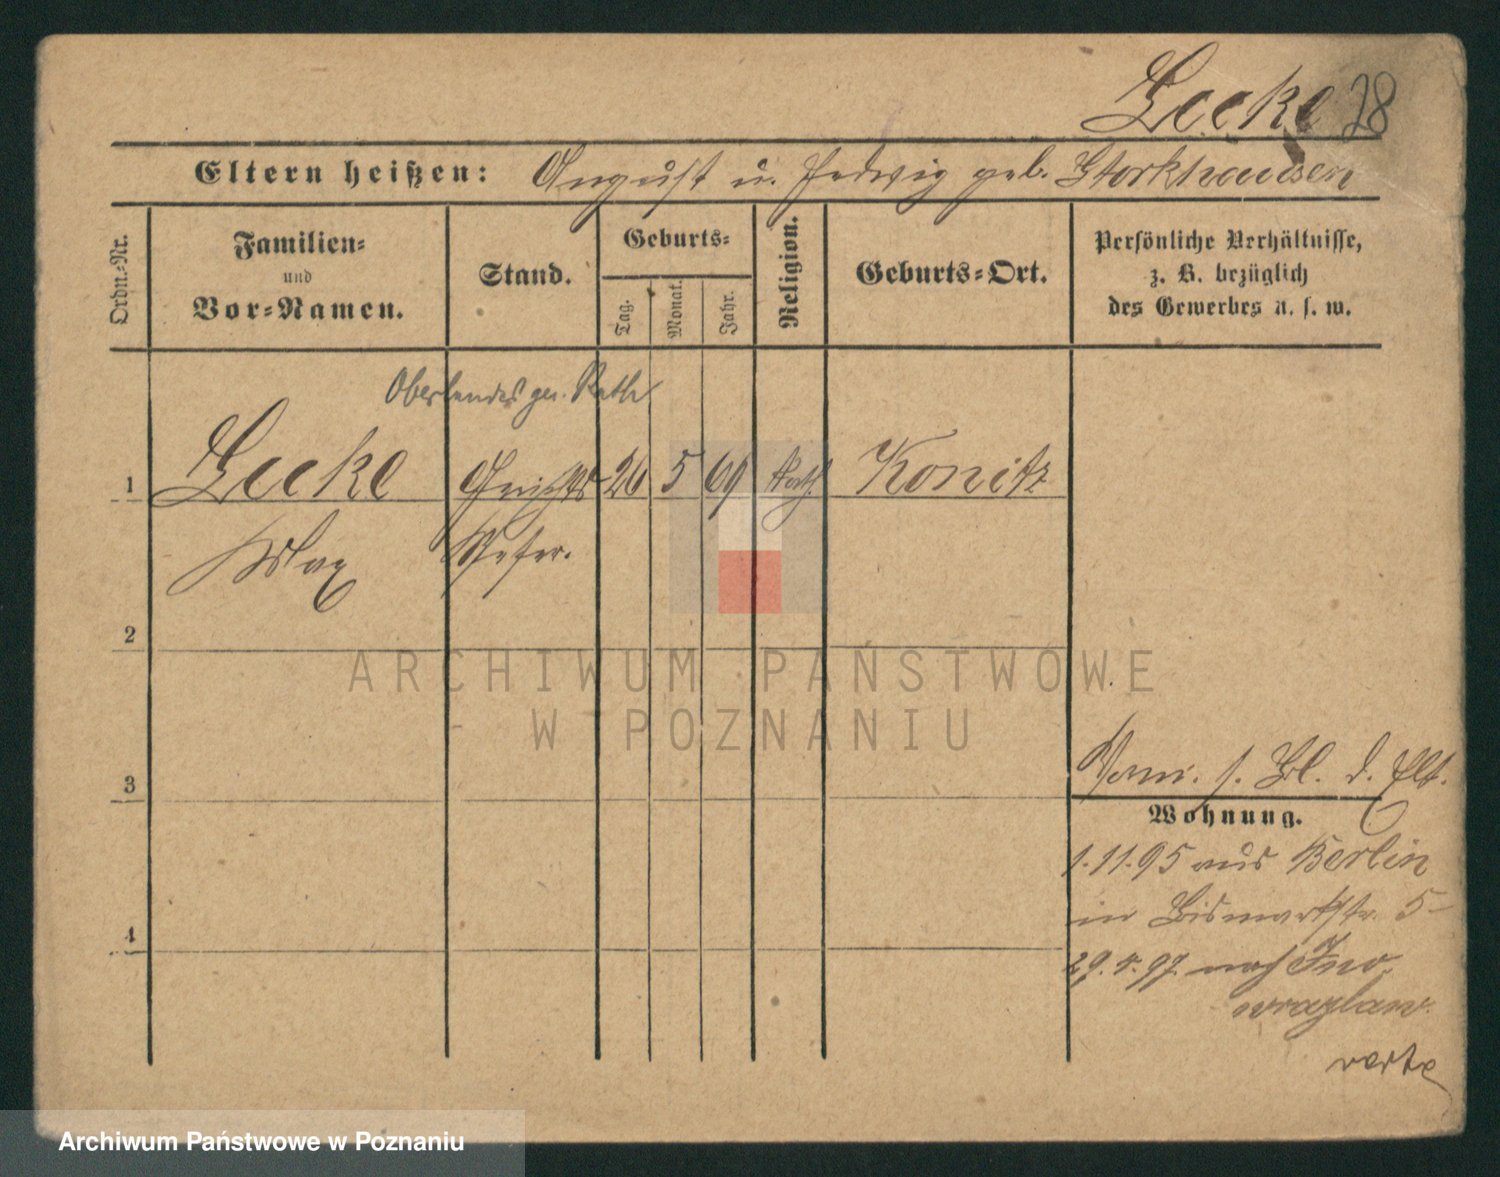 Lecke 28
Eltern heißen: August u. Hedwig geb. Storkhausen
Ordn.-Nr.
Familien-
und
Vor-Namen.
Stand.
Geburts-
Tag.
Monat.
Jahr.
Religion.
Geburts-Ort.
Persönliche Verhältnisse,
z. B. bezüglich
des Gewerbes u. s. w.
Oberlandesger. Rath
1 Lecke Gerichts 26 5 69 kath. Konitz
Max Refer.
2
ARCHIWUM PAŃSTWOWE
W POZNANIU
3
s. Bl. d. Elt.
Wohnung.
1.11.95 aus Berlin
in Bismarkstr. 5
4
29.4.97. nach Ino
wrazlaw.
verte
Archiwum Państwowe w Poznaniu